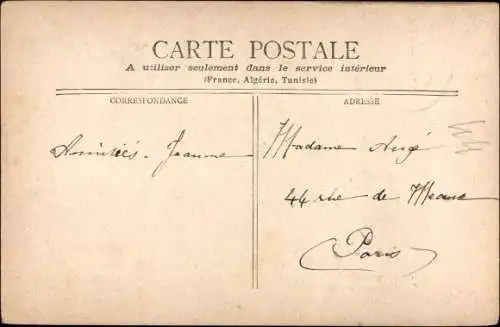 CARTE POSTALE
A utiliser seulement dans le service intérieur
(France, Algérie, Tunisie)
CORRESPONDANCE
ADRESSE
Amitiés. Jeanne
Madame Augé
44 rue de Meaux
Paris
44